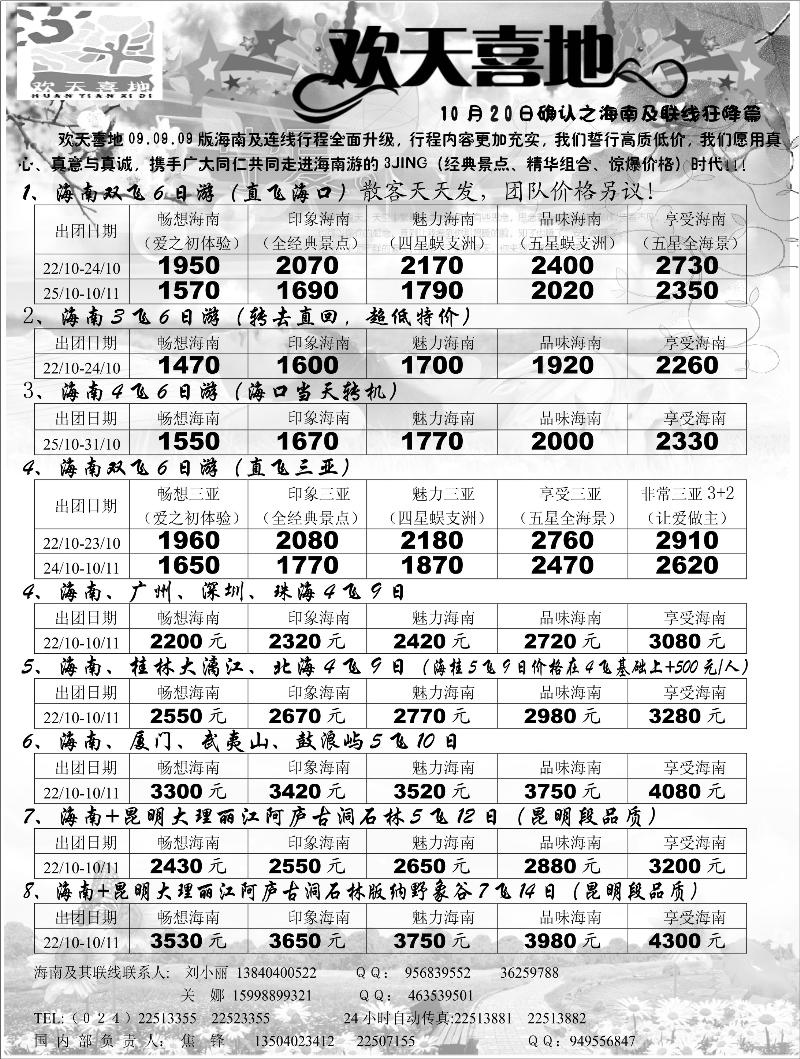 欢天喜地
HUAN TIAN XI DI
欢天喜地
10月20日确认之海南及联线狂降篇
欢天喜地09.09.09版海南及连线行程全面升级，行程内容更加充实，我们誓行高质低价，我们愿用真
心、真意与真诚，携手广大同仁共同走进海南游的3JING（经典景点、精华组合、惊爆价格）时代!!!
1、海南双飞6日游（直飞海口）散客天天发，团队价格另议!
出团日期 畅想海南（爱之初体验） 印象海南（全经典景点） 魅力海南（四星蜈支洲） 品味海南（五星蜈支洲） 享受海南（五星全海景）
22/10-24/10 1950 2070 2170 2400 2730
25/10-10/11 1570 1690 1790 2020 2350
2、海南3飞6日游（转去直回，超低特价）
出团日期 畅想海南 印象海南 魅力海南 品味海南 享受海南
22/10-24/10 1470 1600 1700 1920 2260
3、海南4飞6日游（海口当天转机）
出团日期 畅想海南 印象海南 魅力海南 品味海南 享受海南
25/10-31/10 1550 1670 1770 2000 2330
4、海南双飞6日游（直飞三亚）
出团日期 畅想三亚（爱之初体验） 印象三亚（全经典景点） 魅力三亚（四星蜈支洲） 享受三亚（五星全海景） 非常三亚3+2（让爱做主）
22/10-23/10 1960 2080 2180 2760 2910
24/10-10/11 1650 1770 1870 2470 2620
4、海南、广州、深圳、珠海4飞9日
出团日期 畅想海南 印象海南 魅力海南 品味海南 享受海南
22/10-10/11 2200元 2320元 2420元 2720元 3080元
5、海南、桂林大漓江、北海4飞9日（海桂5飞9日价格在4飞基础上+500元/人）
出团日期 畅想海南 印象海南 魅力海南 品味海南 享受海南
22/10-10/11 2550元 2670元 2770元 2980元 3280元
6、海南、厦门、武夷山、鼓浪屿5飞10日
出团日期 畅想海南 印象海南 魅力海南 品味海南 享受海南
22/10-10/11 3300元 3420元 3520元 3750元 4080元
7、海南+昆明大理丽江阿庐古洞石林5飞12日（昆明段品质）
出团日期 畅想海南 印象海南 魅力海南 品味海南 享受海南
22/10-10/11 2430元 2550元 2650元 2880元 3200元
8、海南+昆明大理丽江阿庐古洞石林版纳野象谷7飞14日（昆明段品质）
出团日期 畅想海南 印象海南 魅力海南 品味海南 享受海南
22/10-10/11 3530元 3650元 3750元 3980元 4300元
海南及其联线联系人: 刘小丽 13840400522 QQ: 956839552 36259788
关 娜 15998899321 QQ: 463539501
TEL:(024)22513355 22523355 24小时自动传真:22513881 22513882
国内部负责人: 焦 锋 13504023412 22507155 QQ:949556847